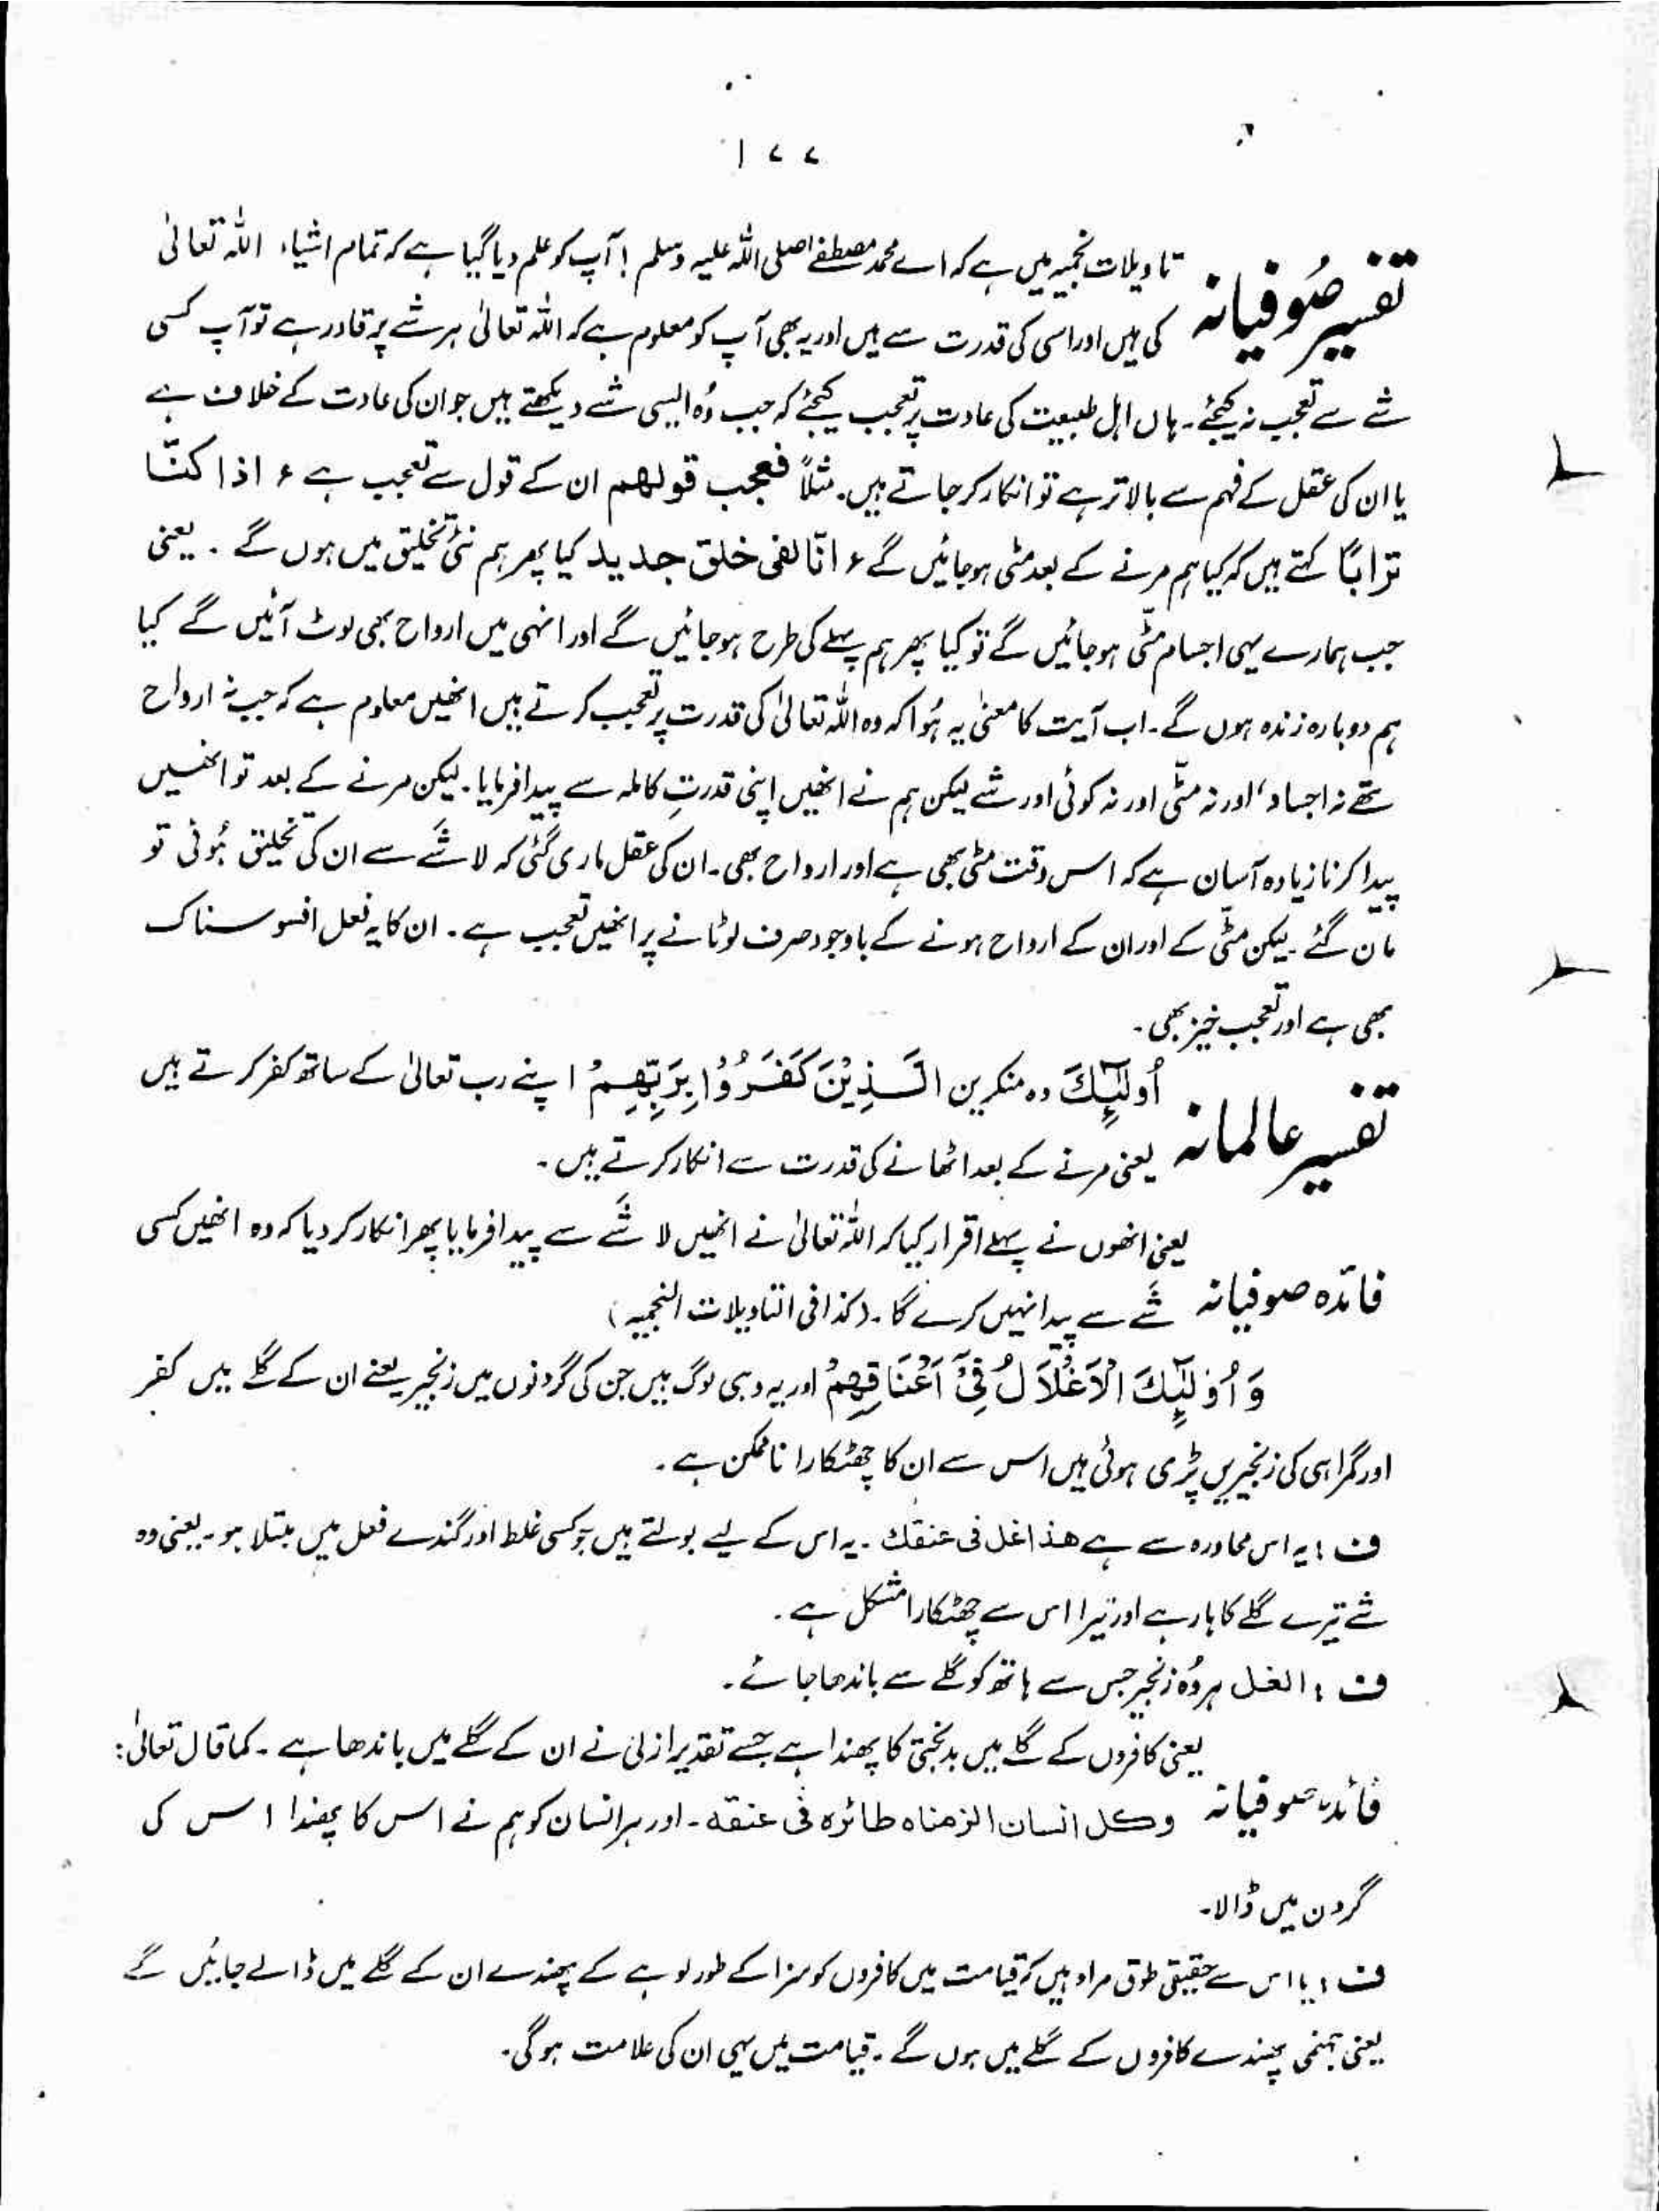 ۱۷۷
تفسیر صُوفیانہ
تاویلات نجمیہ میں ہے کہ اے محمد مصطفےٰ صلی اللہ علیہ وسلم ! آپ کو علم دیا گیا ہے کہ تمام اشیاء اللہ تعالیٰ
کی ہیں اور اسی کی قدرت سے ہیں اور یہ بھی آپ کو معلوم ہے کہ اللہ تعالیٰ ہر شے پر قادر ہے تو آپ کسی
شے سے تعجب نہ کیجئے ۔ ہاں اہل طبیعت کی عادت پر تعجب کیجئے کہ جب وُہ ایسی شے دیکھتے ہیں جو ان کی عادت کے خلاف ہے
یا ان کی عقل کے فہم سے بالاتر ہے تو انکار کر جاتے ہیں ۔ مثلاً فعجب قولھم ان کے قول سے تعجب ہے ء اذا کنّا
ترابًا کہتے ہیں کہ کیا ہم مرنے کے بعد مٹی ہوجائیں گے ء انّا لفی خلق جدید کیا پھر ہم نئی تخلیق میں ہوں گے ۔ یعنی
جب ہمارے یہی اجسام مٹّی ہوجائیں گے تو کیا پھر ہم پہلے کی طرح ہوجائیں گے اور انہی میں ارواح بھی لوٹ آئیں گے کیا
ہم دوبارہ زندہ ہوں گے ۔ اب آیت کا معنیٰ یہ ہُوا کہ وہ اللہ تعالیٰ کی قدرت پر تعجب کرتے ہیں انھیں معلوم ہے کہ جب نہ ارواح
تھے نہ اجساد ، اور نہ مٹّی اور نہ کوئی اور شے لیکن ہم نے انھیں اپنی قدرتِ کاملہ سے پیدا فرمایا ۔ لیکن مرنے کے بعد تو انھیں
پیدا کرنا زیادہ آسان ہے کہ اس وقت مٹی بھی ہے اور ارواح بھی ۔ ان کی عقل ماری گئی کہ لا شَے سے ان کی تخلیق ہُوئی تو
مان گئے ۔ لیکن مٹّی کے اور ان کے ارواح ہونے کے باوجود صرف لوٹانے پر انھیں تعجب ہے ۔ ان کا یہ فعل افسوسناک
بھی ہے اور تعجب خیز بھی ۔
تفسیر عالمانہ
اُولٰٓئِكَ وہ منکرین الَّذِیْنَ كَفَرُوْا بِرَبِّهِمْ اپنے رب تعالیٰ کے ساتھ کفر کرتے ہیں
یعنی مرنے کے بعد اٹھانے کی قدرت سے انکار کرتے ہیں ۔
فائدہ صوفیانہ
یعنی انھوں نے پہلے اقرار کیا کہ اللہ تعالیٰ نے انھیں لا شَے سے پیدا فرمایا پھر انکار کر دیا کہ وہ انھیں کسی
شَے سے پیدا نہیں کرے گا ۔ (کذا فی التاویلات النجمیہ)
وَ اُولٰٓئِكَ الْاَغْلَالُ فِیْۤ اَعْنَاقِهِمْ اور یہ وہی لوگ ہیں جن کی گردنوں میں زنجیر یعنے ان کے گلے میں کفر
اور گمراہی کی زنجیریں پڑی ہوئی ہیں اس سے ان کا چھٹکارا ناممکن ہے ۔
ف : یہ اس محاورہ سے ہے ھذا غل فی عنقك ۔ یہ اس کے لیے بولتے ہیں جو کسی غلط اور گندے فعل میں مبتلا ہو ۔ یعنی وہ
شے تیرے گلے کا ہار ہے اور تیرا اس سے چھٹکارا مشکل ہے ۔
ف : الغل ہر وُہ زنجیر جس سے ہاتھ کو گلے سے باندھا جائے ۔
فائدہ صوفیانہ
یعنی کافروں کے گلے میں بدبختی کا پھندا ہے جسے تقدیر ازلی نے ان کے گلے میں باندھا ہے ۔ کما قال تعالیٰ :
وکل انسان الزمناہ طائرہ فی عنقه ۔ اور ہر انسان کو ہم نے اس کا پھندا اس کی
گردن میں ڈالا ۔
ف : یا اس سے حقیقی طوق مراد ہیں کہ قیامت میں کافروں کو سزا کے طور لوہے کے پھندے ان کے گلے میں ڈالے جائیں گے
یعنی جہنمی پھندے کافروں کے گلے میں ہوں گے ۔ قیامت میں یہی ان کی علامت ہوگی ۔